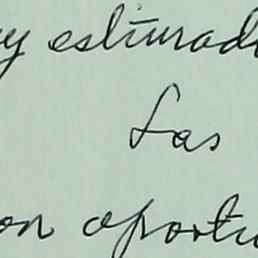 y estimad
Las
on oportu